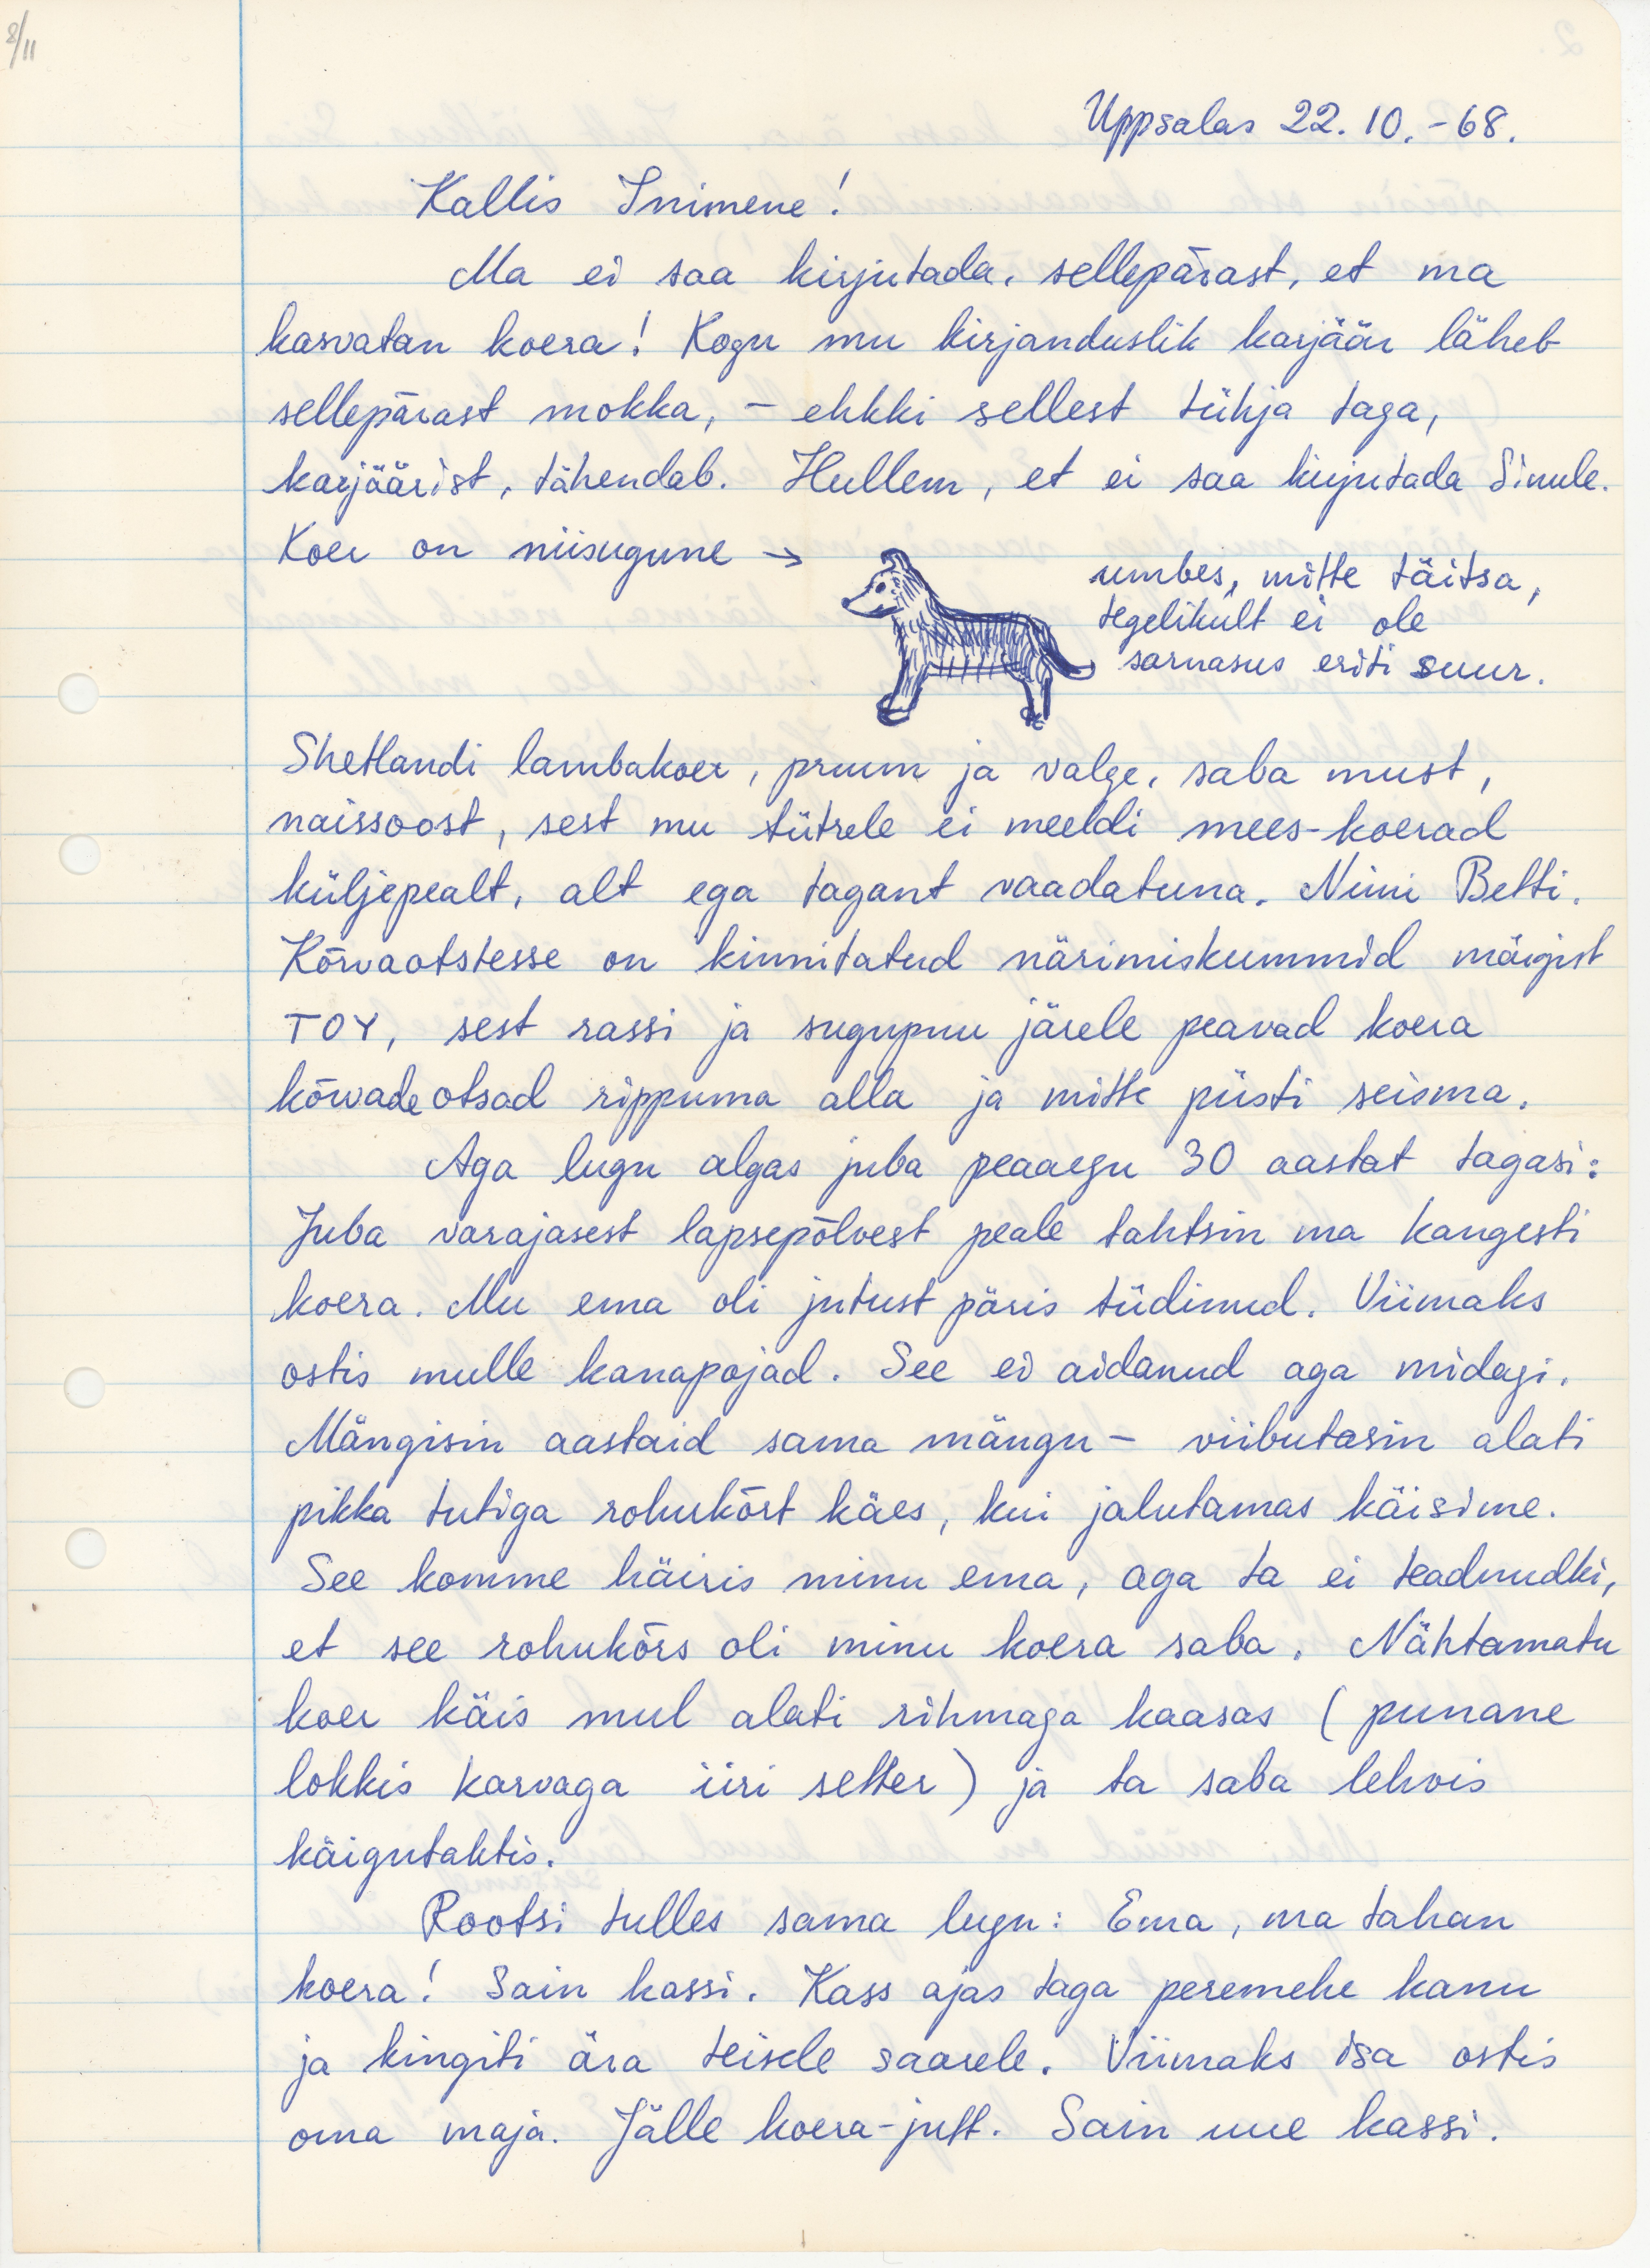 8/11
Uppsalas 22. 10. - 68.
Kallis Inimene!
Ma ei saa kirjutada, sellepärast, et ma
kasvatan koera! Kogu mu kirjanduslik karjäär läheb
sellepärast mokka, - ehkki sellest tühja taga,
karjäärist, tähendab. Hullem, et ei saa kirjutada Sinule.
Koer on niisugune →
umbes, mitte täitsa,
tegelikult ei ole
sarnasus eriti suur.
Shetlandi lambakoer, pruun ja valge, saba must,
naissoost, sest mu tütrele ei meeldi mees-koerad
küljepealt, alt ega tagant vaadatuna. Nimi Betti.
Kõrvaotstesse on kinnitatud närimiskummid märgist
TOY, sest rassi ja sugupuu järele peavad koera
kõrvade otsad rippuma alla ja mitte püsti seisma.
Aga lugu algas juba peaaegu 30 aastat tagasi:
Juba varajasest lapsepõlvest peale tahtsin ma kangesti
koera. Mu ema oli jutust päris tüdinud. Viimaks
ostis mulle kanapojad. See ei aidanud aga midagi.
Mängisin aastaid sama mängu - viibutasin alati
pikka tutiga rohukõrt käes, kui jalutamas käisime.
See komme häiris minu ema, aga ta ei teadnudki,
et see rohukõrs oli minu koera saba. Nähtamatu
koer käis mul alati rihmaga kaasas (punane
lokkis karvaga iiri setter) ja ta saba lehvis
käigutaktis.
Rootsi tulles sama lugu: Ema, ma tahan
koera! Sain kassi. Kass ajas taga peremehe kanu
ja kingiti ära teisele saarele. Viimaks isa ostis
oma maja. Jälle koera-jutt. Sain uue kassi.